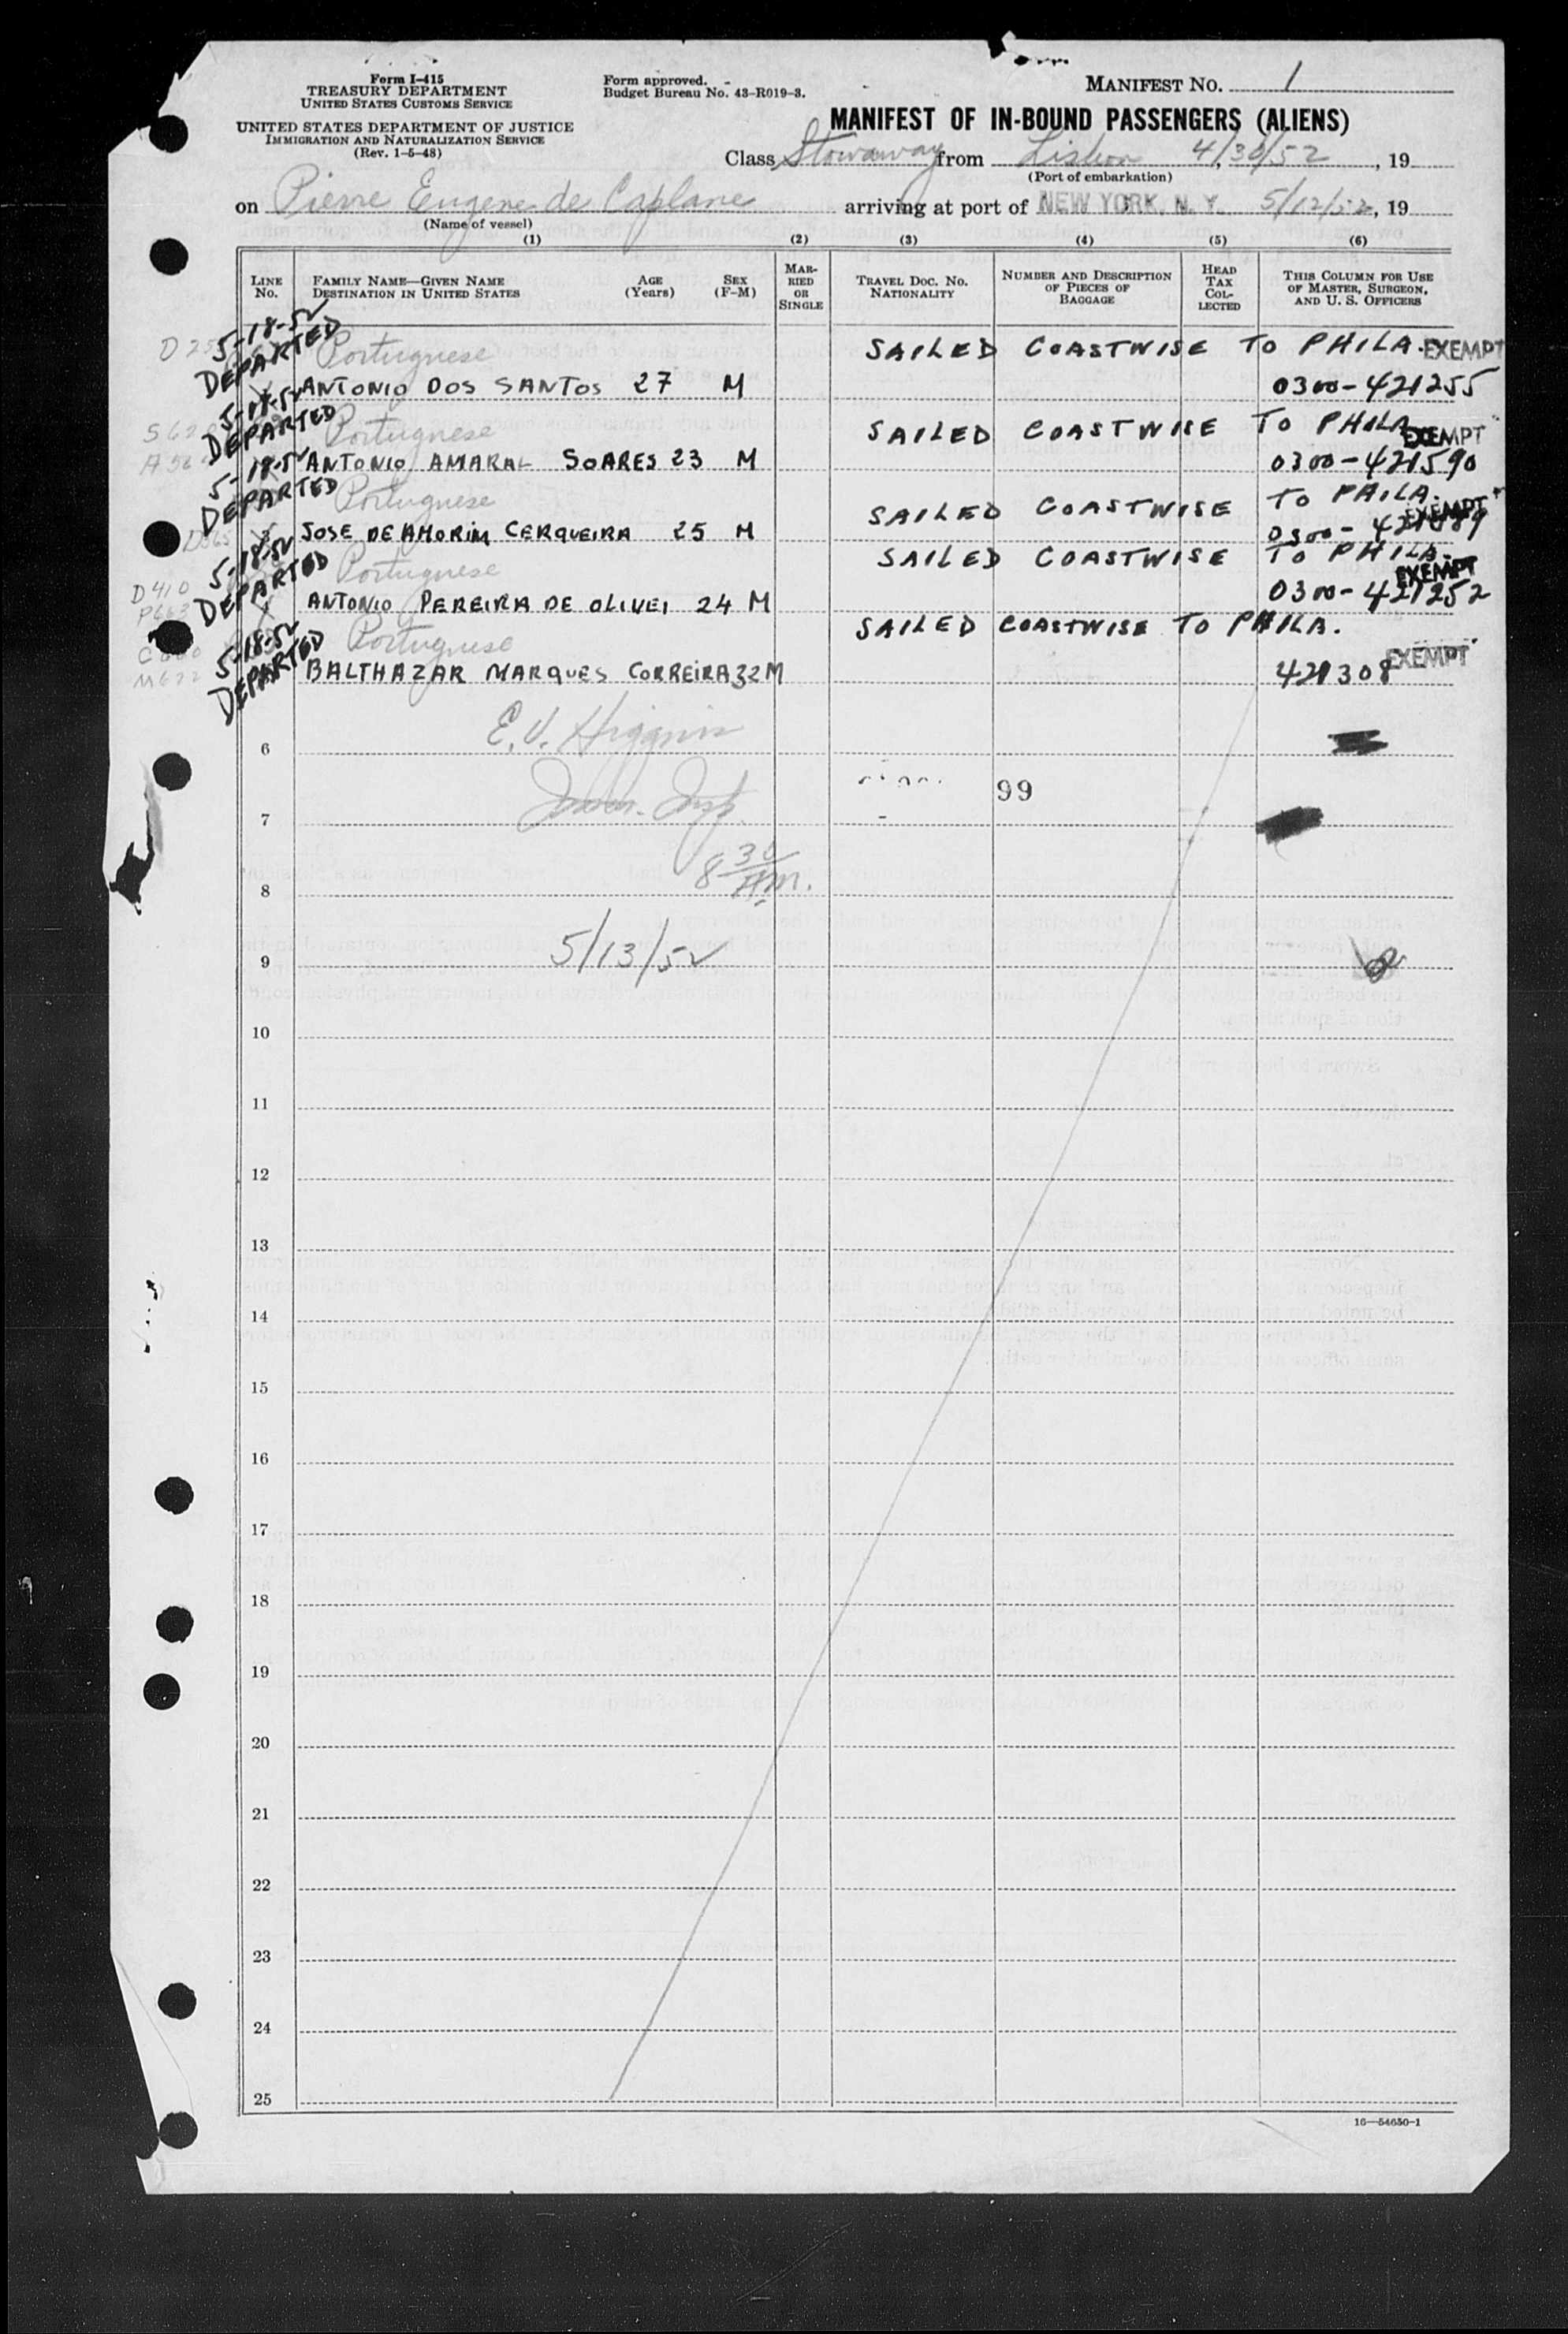 Form I-415
TREASURY DEPARTMENT
UNITED STATES CUSTOMS SERVICE
UNITED STATES DEPARTMENT OF JUSTICE
IMMIGRATION AND NATURALIZATION SERVICE
(Rev. 1-5-48)
Form approved.
Budget Bureau No. 43-R019-3.
MANIFEST NO. 1
MANIFEST OF IN-BOUND PASSENGERS (ALIENS)
Class Stowaway from Lisbon 4/30/52, 19
(Port of embarkation)
on Pierre Eugene de Caplane arriving at port of NEW YORK, N. Y. 5/12/52, 19
(Name of vessel)
(1) (2) (3) (4) (5) (6)
LINE No.
FAMILY NAME—GIVEN NAME
DESTINATION IN UNITED STATES
AGE (Years)
SEX (F-M)
MARRIED OR SINGLE
TRAVEL DOC. NO.
NATIONALITY
NUMBER AND DESCRIPTION OF PIECES OF BAGGAGE
HEAD TAX COLLECTED
THIS COLUMN FOR USE OF MASTER, SURGEON, AND U. S. OFFICERS
5-18-52 Portuguese SAILED COASTWISE TO PHILA. EXEMPT
DEPARTED ANTONIO DOS SANTOS 27 M 0300-421255
5-18-52 Portuguese SAILED COASTWISE TO PHILA EXEMPT
DEPARTED ANTONIO AMARAL SOARES 23 M 0300-421590
5-18-52 Portuguese SAILED COASTWISE TO PHILA. EXEMPT
DEPARTED JOSE DE AMORIM CERQUEIRA 25 M 0300-
5-18-52 Portuguese SAILED COASTWISE TO PHILA. EXEMPT
D410
DEPARTED ANTONIO PEREIRA DE OLIVEI 24 M 0300-421252
5-18-52 Portuguese SAILED COASTWISE TO PHILA.
DEPARTED BALTHAZAR MARQUES CORREIRA 32 M 421308 EXEMPT
E. V. Higgins
6
Imm. Insp.
99
7
8 30 A.M.
8
5/13/52
9
10
11
12
13
14
15
16
17
18
19
20
21
22
23
24
25
16—54650-1